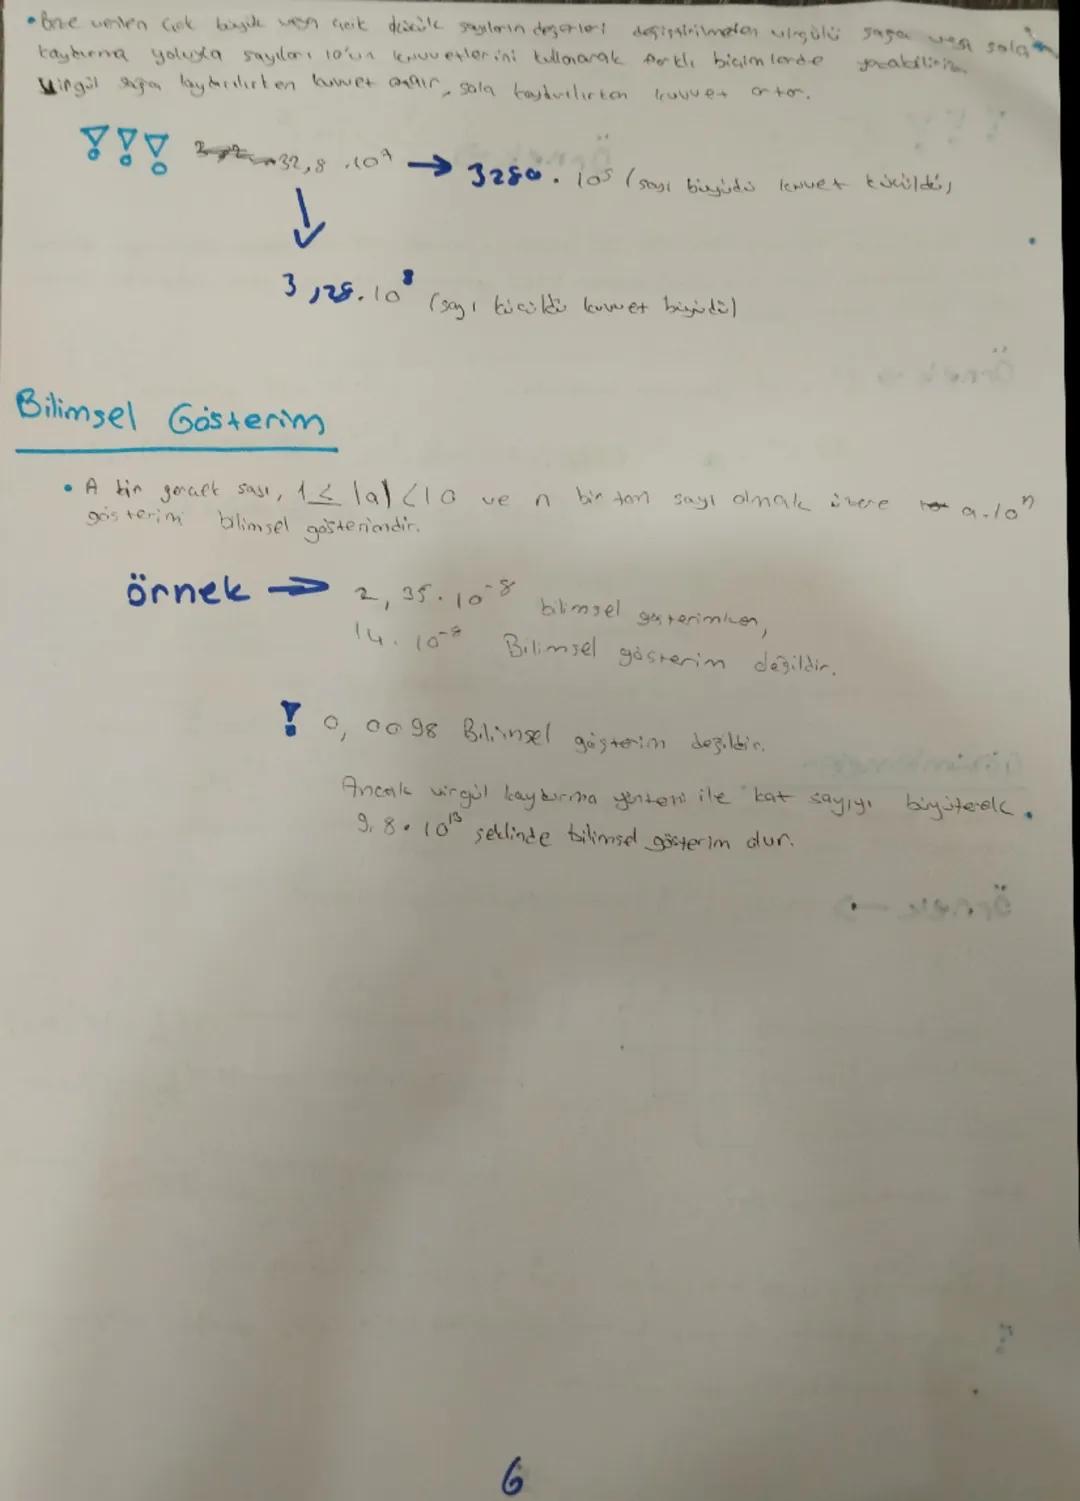 • Bize verilen çok büyük veya çok küçük sayıların değerleri değiştirilmeden virgülü sağa veya sola
kaydırma yoluyla sayıları 10'un kuvvetlerini kullanarak farklı biçimlerde yazabiliriz.
Virgül sağa kaydırılırken kuvvet azalır, sola kaydırılırken kuvvet artar.
32,8 .10⁷ → 3280. 10⁵ (sayı büyüdü kuvvet küçüldü)
3,28.10⁸ (sayı küçüldü kuvvet büyüdü)
Bilimsel Gösterim
• A bir gerçek sası, 1≤ |a| <10 ve n bir tam sayı olmak üzere a.10ⁿ
gösterimi bilimsel gösterimdir.
örnek → 2,35.10⁻⁸ bilimsel gösterimken,
14. 10⁻⁸ Bilimsel gösterim değildir.
! 0,0098 Bilimsel gösterim değildir.
Ancak virgül kaydırma yöntemi ile kat sayıyı büyüterek
9,8.10¹³ şeklinde bilimsel gösterim olur.
6